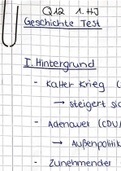 Q12 1. HJ
Geschichte Test
I. Hintergrund
- Kalter Krieg (
→ steigert sic
- Adenauer (CDU/
→ Außenpolitik
- Zunehmender